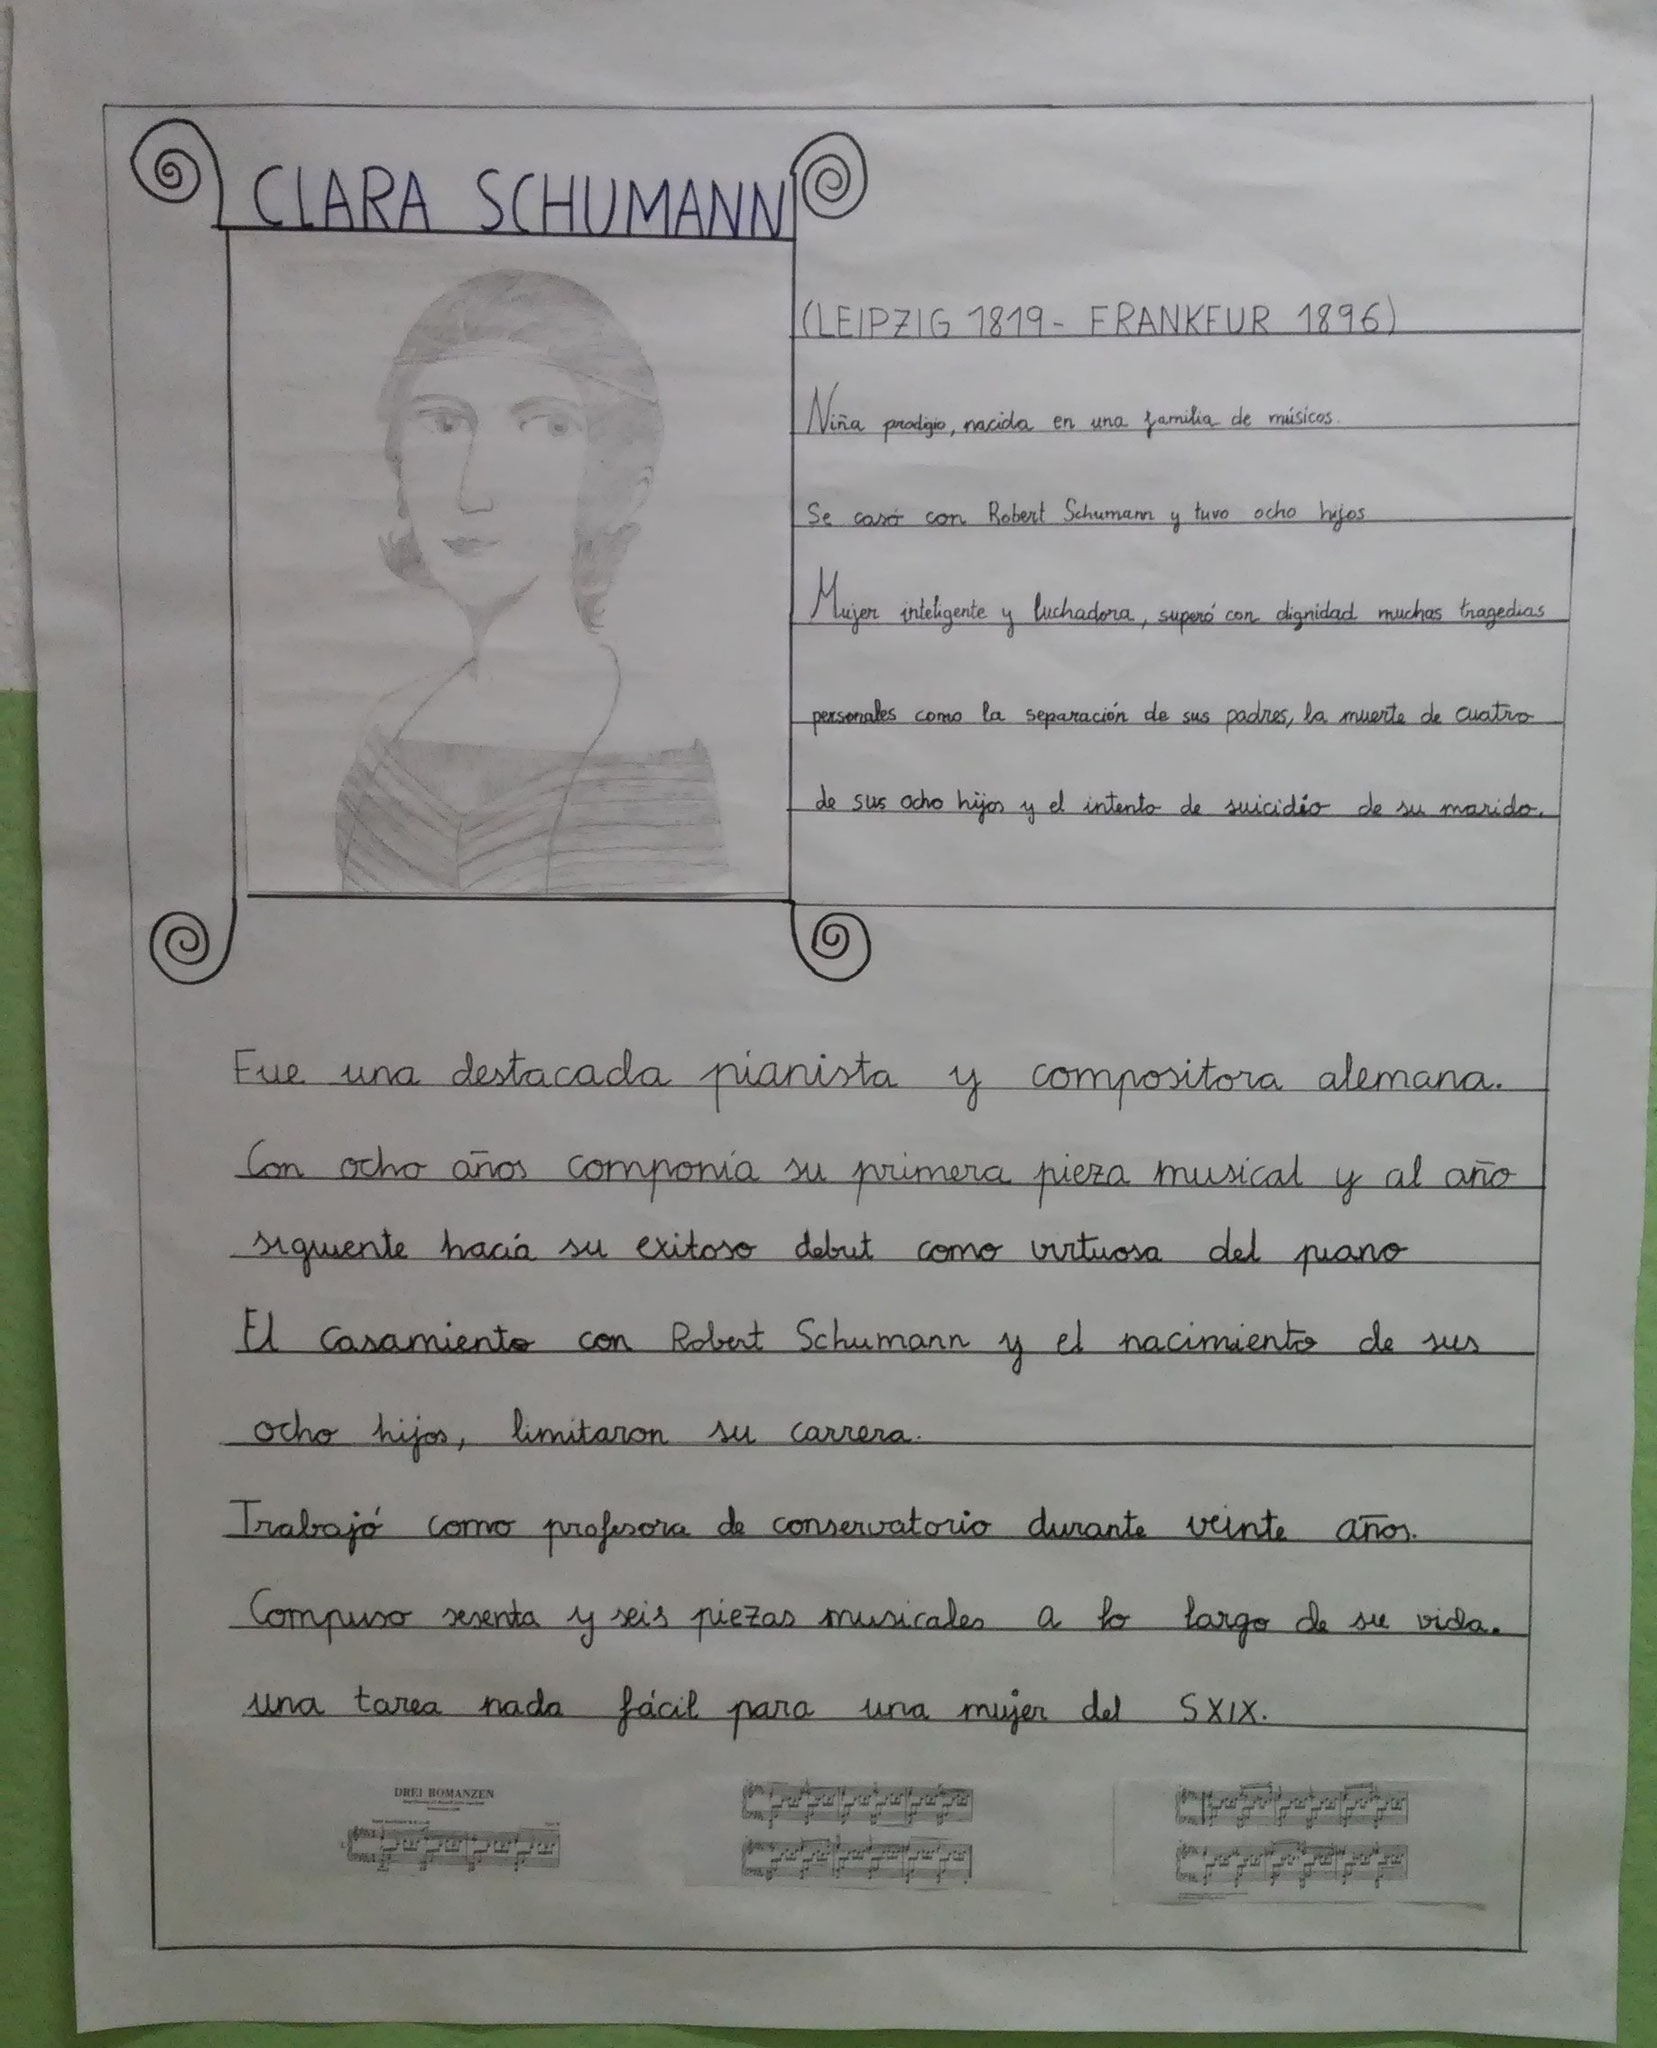 CLARA SCHUMANN
(LEIPZIG 1819- FRANKFUR 1896)
Niña prodigio, nacida en una familia de músicos.
Se casó con Robert Schumann y tuvo ocho hijos
Mujer inteligente y luchadora, superó con dignidad muchas tragedias
personales como la separación de sus padres, la muerte de cuatro
de sus ocho hijos y el intento de suicidio de su marido.
Fue una destacada pianista y compositora alemana.
Con ocho años componía su primera pieza musical y al año
siguiente hacía su exitoso debut como virtuosa del piano
El casamiento con Robert Schumann y el nacimiento de sus
ocho hijos, limitaron su carrera.
Trabajó como profesora de conservatorio durante veinte años.
Compuso sesenta y seis piezas musicales a lo largo de su vida.
una tarea nada fácil para una mujer del SXIX.
DREI ROMANZEN